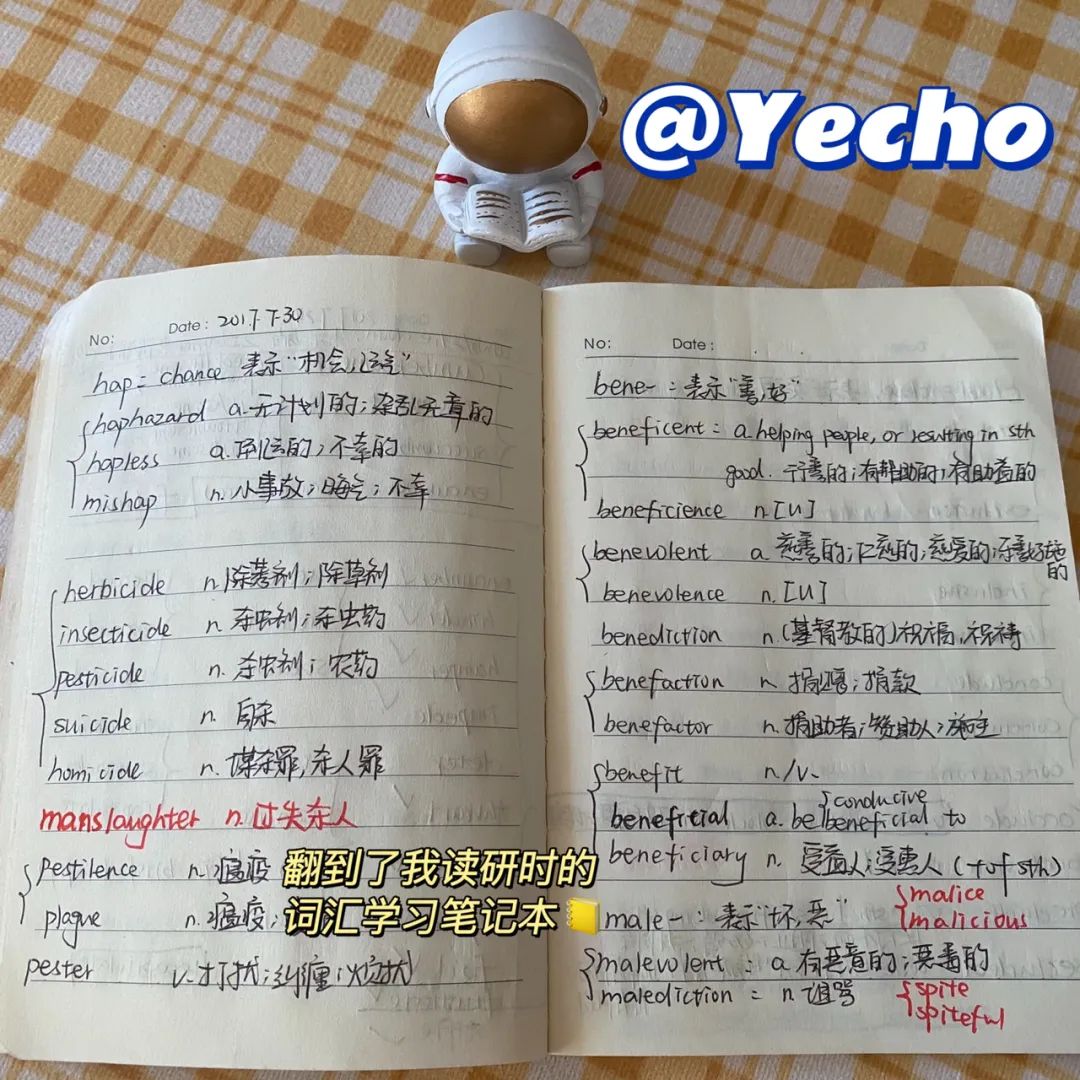 @Yecho
No:
Date: 2017-7-30
hap = chance 表示"机会,运气"
haphazard a.无计划的;杂乱无章的
hapless a.倒运的;不幸的
mishap n.小事故;晦气;不幸
herbicide n.除莠剂;除草剂
insecticide n.杀虫剂;杀虫药
pesticide n.杀虫剂;农药
suicide n.自杀
homicide n.谋杀罪,杀人罪
manslaughter n.过失杀人
pestilence n.瘟疫
plague n.瘟疫;
pester v.打扰;纠缠;烦扰
翻到了我读研时的
词汇学习笔记本
No:
Date:
bene- : 表示"善,好"
beneficent = a.helping people, or resulting in sth
good. 行善的;有帮助的;有助益的
beneficience n.[U]
benevolent a.慈善的;仁慈的;慈爱的;乐善好施
的
benevolence n.[U]
benediction n.(基督教的)祝福,祝祷
benefaction n.捐赠;捐款
benefactor n.捐助者;赞助人;施主
benefit n./v.
conducive
beneficial a. be beneficial to
beneficiary n. 受益人;受惠人 (+of sth)
malice
male- : 表示"坏,恶" malicious
malevolent = a.有恶意的;恶毒的
malediction = n.诅骂 spite
spiteful